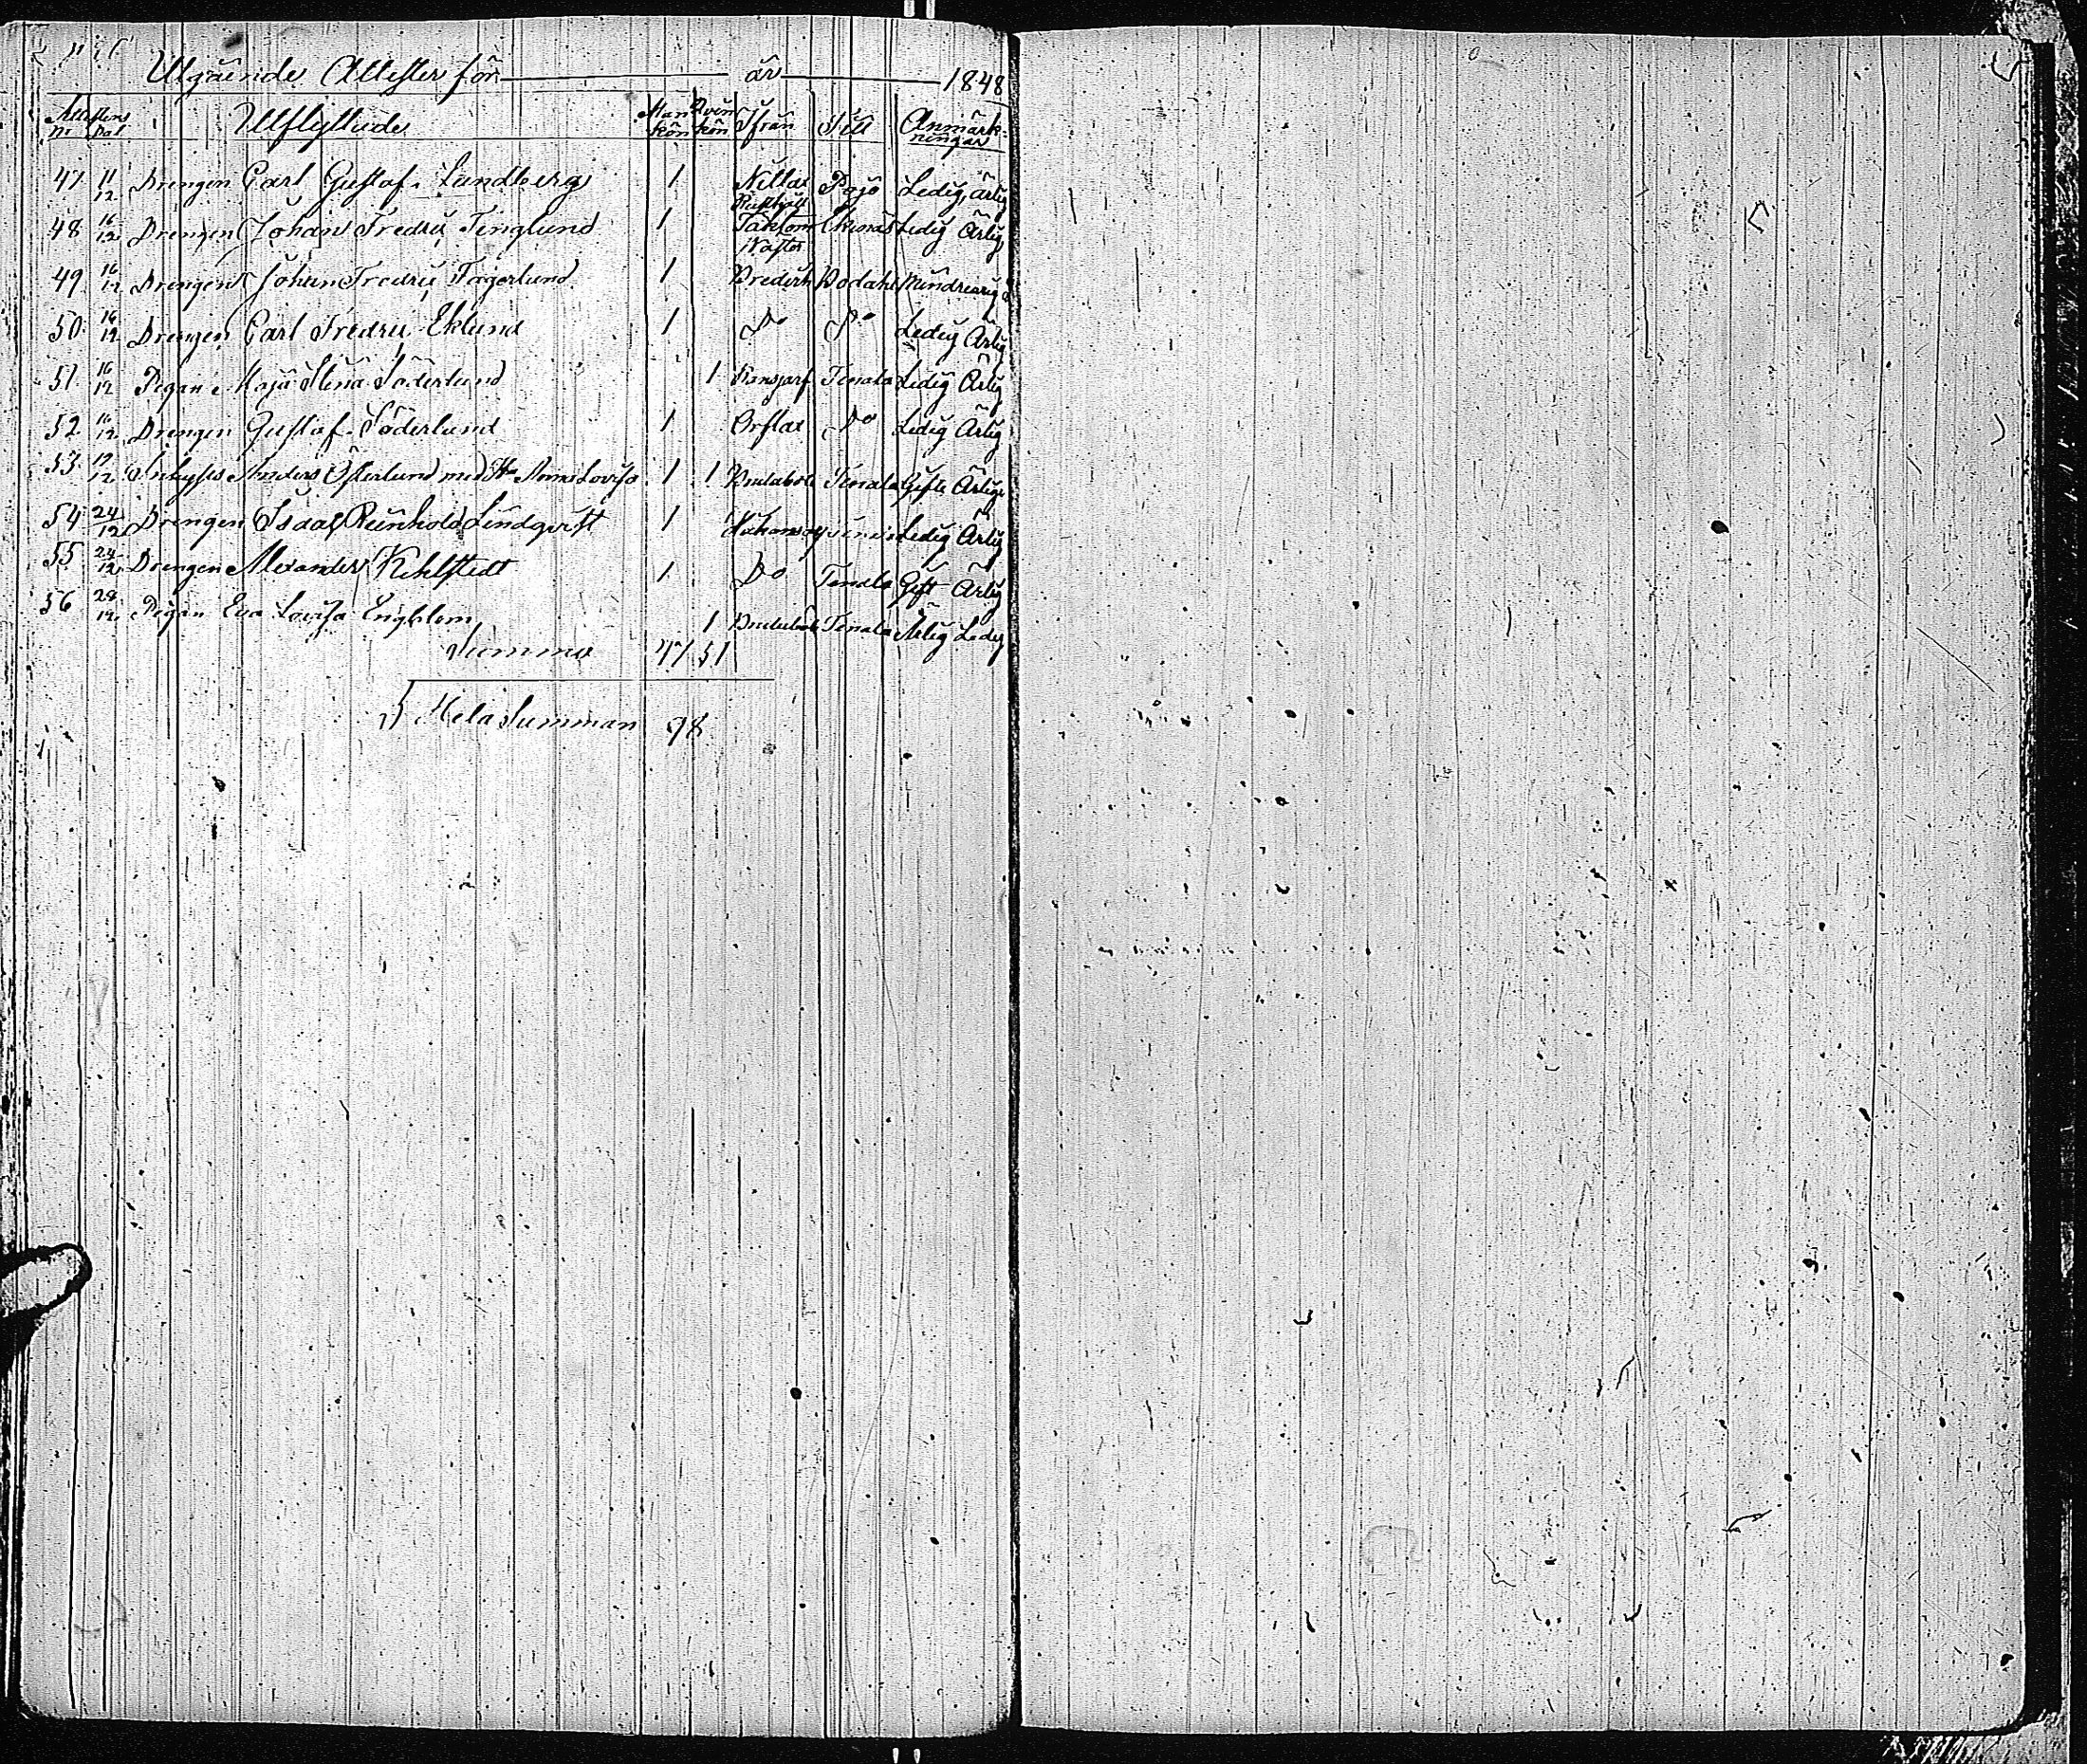 Utgående Attester för år 1848
Attestens Man Qvin Ifrån Till Anmärk-
Nr Dat Utflyttade kön kön ningar
47. 11/12 Drengen Carl Gustaf Lundberg 1 Pojo Ledig, ärlig
48 16/12 Drengen Johan Fredric Tenglund 1 Ekenäs Ledig Ärlig
49. 16/12 Drengen Johan Fredric Fagerlund 1 Bodahl
50. 16/12 Drengen Carl Fredric Eklund 1 Do Do Ledig Ärlig
51. 16/12 Pigan Maja Stina Söderlund 1 Tenala Ledig Ärlig
52 16/12 Drengen Gustaf Söderlund 1 Orslax Do Ledig Ärlig
53. 19/12 Inhyses Anders Österlund med H. Anna Lovisa 1 1 Tenala Gifte Ärlige
54 24/12 Drengen Isaac Reinhold Lindqvist 1 Ledig Ärlig
55 24/12 Drengen Alexander Kihlstedt 1 Do Tenala Gift Ärlig
56 28/12 Pigan Eva Lovisa Engblom 1 Tenala Ärlig Ledig
Summa 47 51
Hela Summan 98